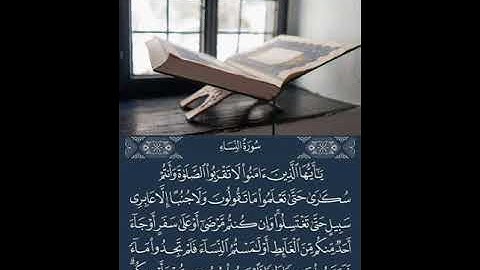 سُورَةُ النِّسَاءِ
يَٰٓأَيُّهَا ٱلَّذِينَ ءَامَنُوا۟ لَا تَقْرَبُوا۟ ٱلصَّلَوٰةَ وَأَنتُمْ
سُكَٰرَىٰ حَتَّىٰ تَعْلَمُوا۟ مَا تَقُولُونَ وَلَا جُنُبًا إِلَّا عَابِرِى
سَبِيلٍ حَتَّىٰ تَغْتَسِلُوا۟ وَإِن كُنتُم مَّرْضَىٰٓ أَوْ عَلَىٰ سَفَرٍ أَوْ جَآءَ
أَحَدٌ مِّنكُم مِّنَ ٱلْغَآئِطِ أَوْ لَٰمَسْتُمُ ٱلنِّسَآءَ فَلَمْ تَجِدُوا۟ مَآءً